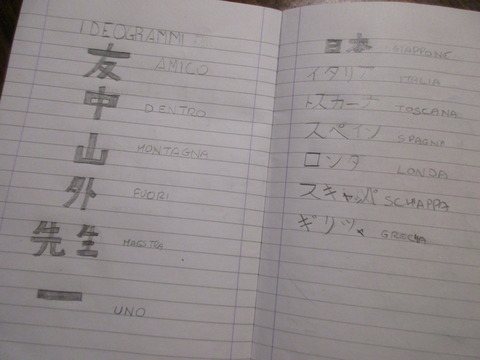 IDEOGRAMMI
友 AMICO
中 DENTRO
山 MONTAGNA
外 FUORI
先生 MAESTRA
一 UNO
日本 GIAPPONE
イタリア ITALIA
トスカーナ TOSCANA
スペイン SPAGNA
ロンダ LONDA
スキャッパ SCHIAPPA
ギリシャ GRECIA